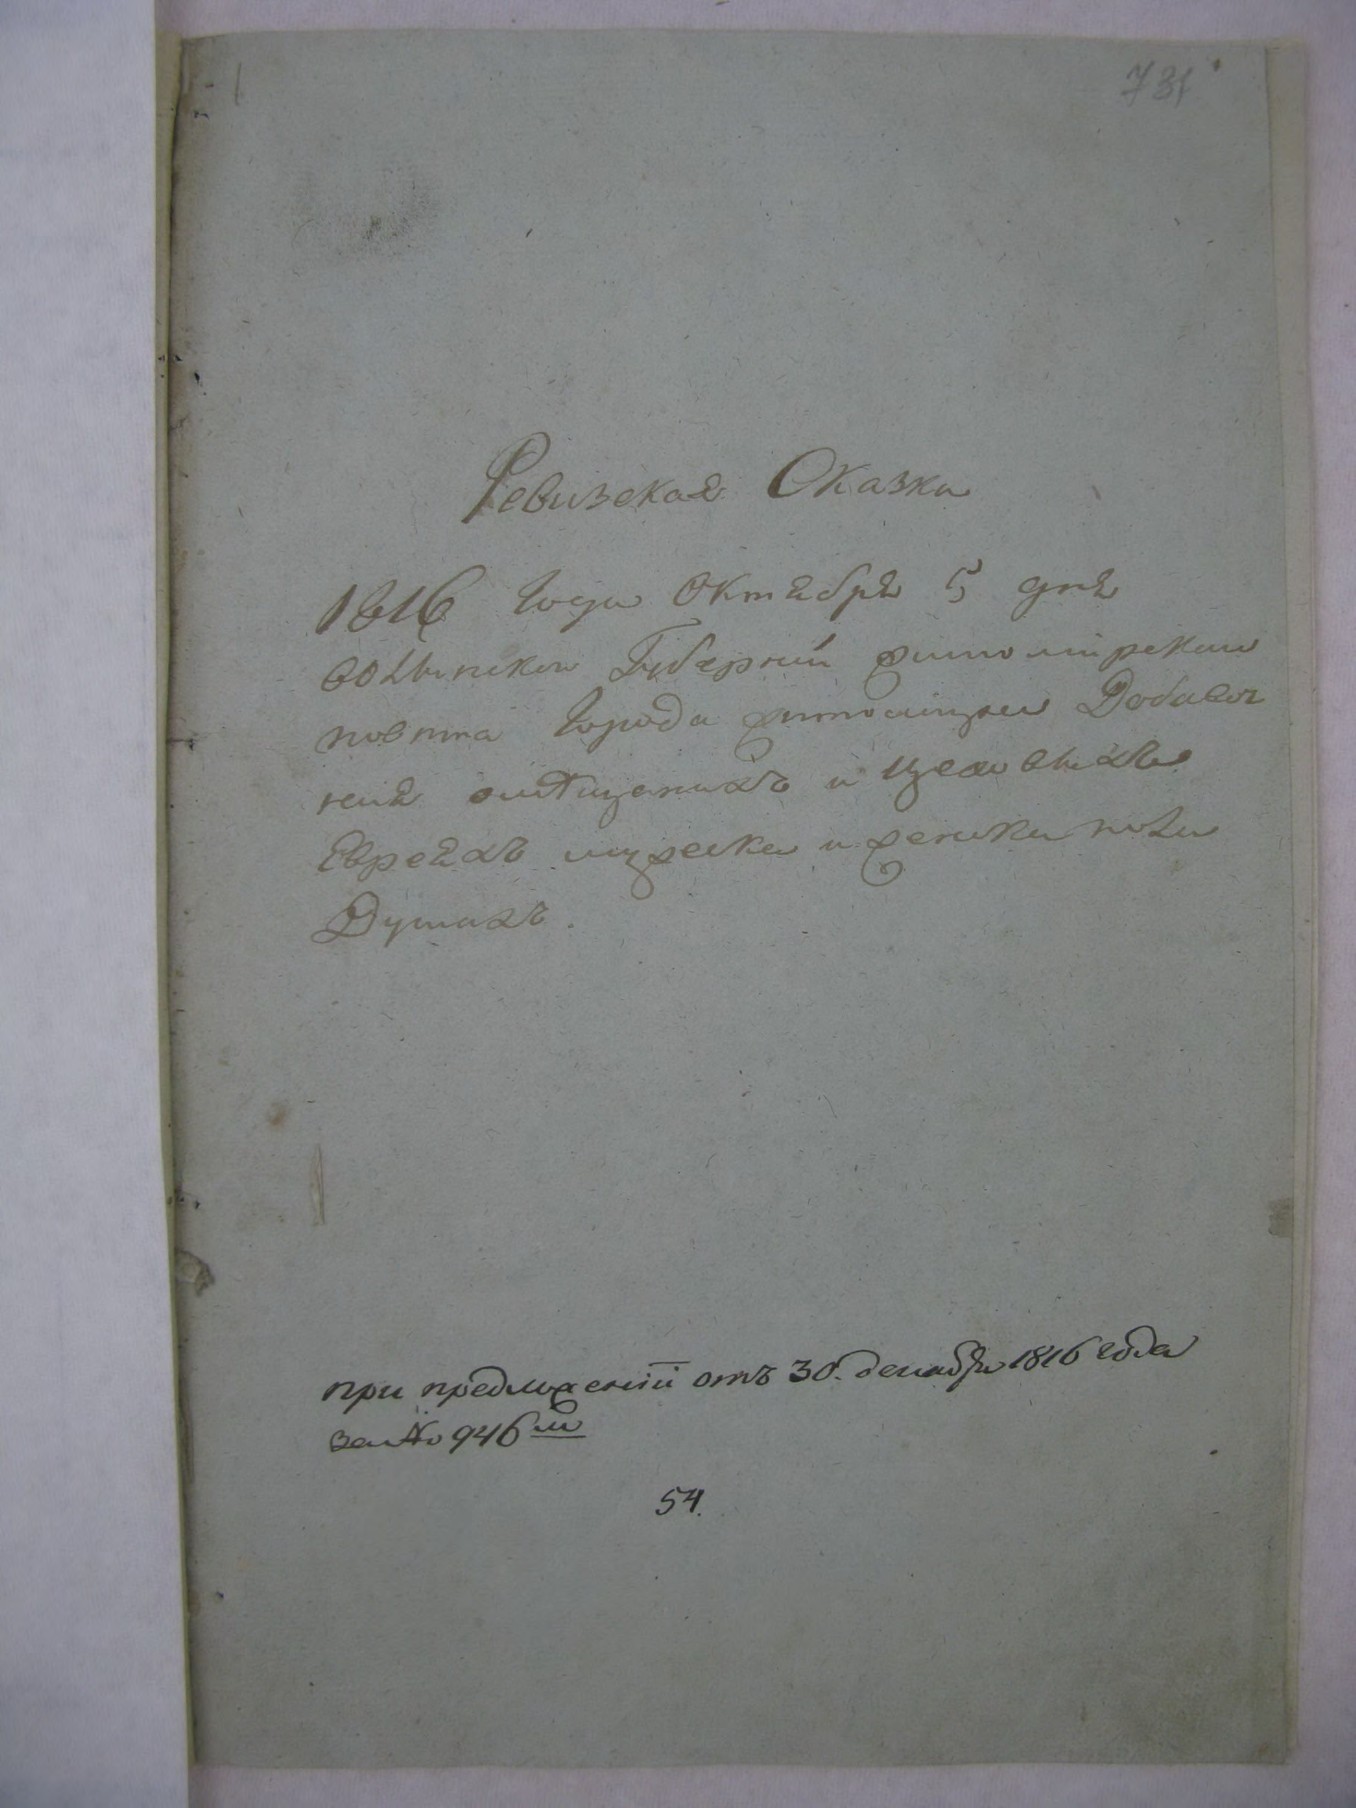 731
Ревизская Сказка
1816 Года Октября 5 дня
волынской Губернии житомирскаго
повѣта Города житомира Добавле
ния омѣщенахъ и цеховыхъ
Евреяхъ мужеска и женска пола
Душахъ.
при предложении отъ 30. декабря 1816 года
за № 946 м
54.